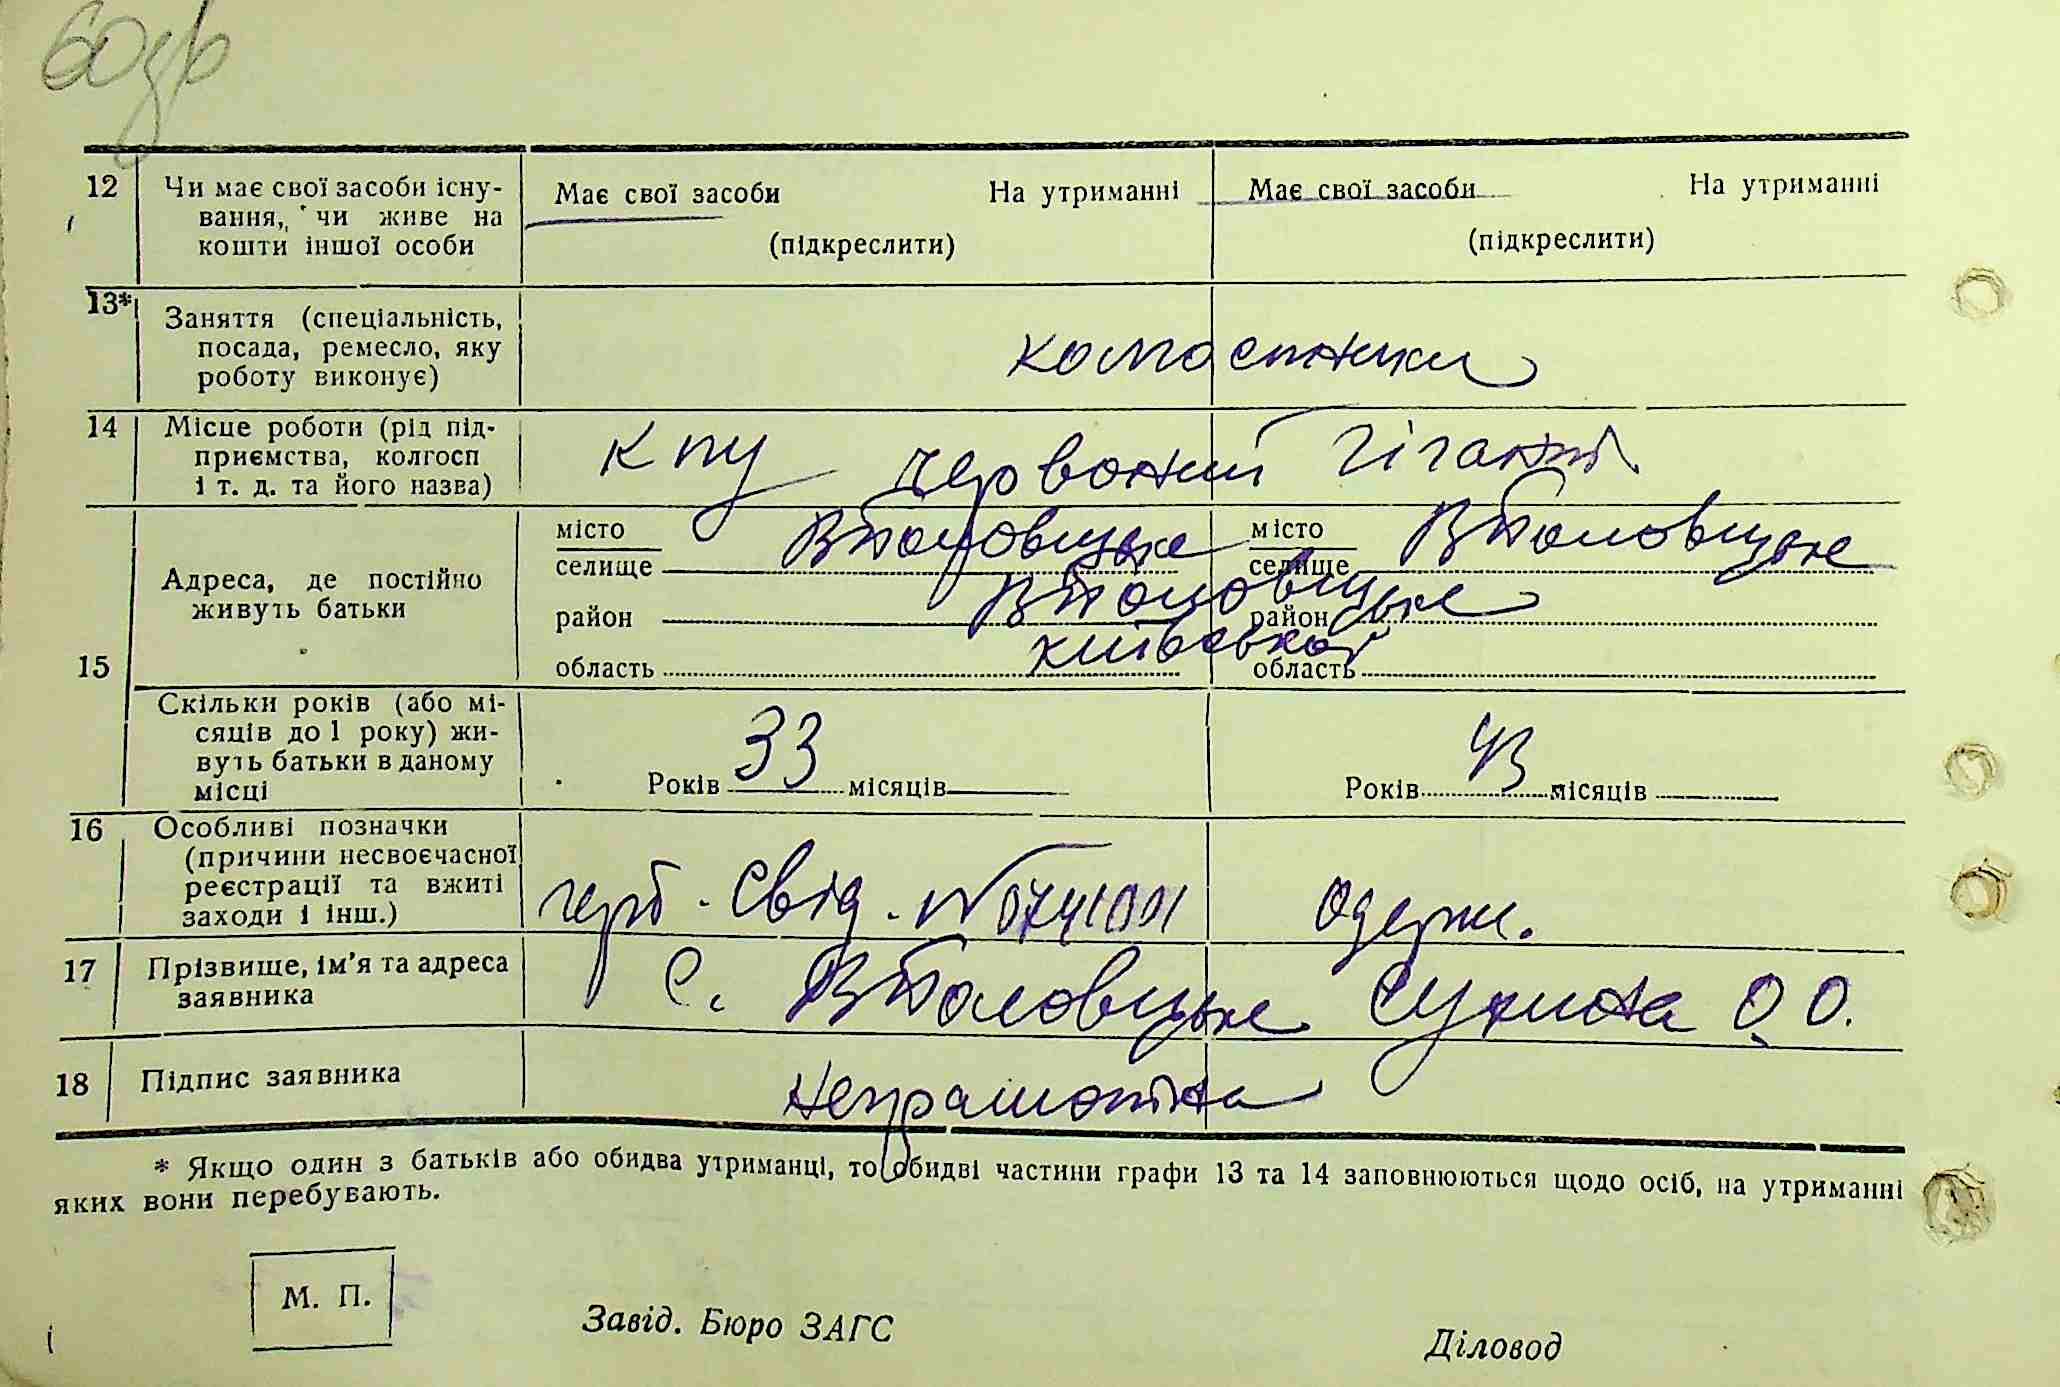 60 зв
12 Чи має свої засоби існу-
вання, чи живе на
кошти іншої особи
Має свої засоби На утриманні
(підкреслити)
Має свої засоби На утриманні
(підкреслити)
13* Заняття (спеціальність,
посада, ремесло, яку
роботу виконує)
14 Місце роботи (рід під-
приємства, колгосп
і т. д. та його назва)
Червоний Гігант
15 Адреса, де постійно
живуть батьки
місто
селище В Половецьке
район В Половецьке
область київської
місто
селище В Половецьке
район
область
Скільки років (або мі-
сяців до 1 року) жи-
вуть батьки в даному
місці
Років 33 місяців
Років 43 місяців
16 Особливі позначки
(причини несвоєчасної
реєстрації та вжиті
заходи і інш.)
герб. Свід. № одерж.
17 Прізвище, ім'я та адреса
заявника
С. В Половецьке О. О.
18 Підпис заявника
Неграмотна
* Якщо один з батьків або обидва утриманці, то обидві частини графи 13 та 14 заповнюються щодо осіб, на утриманні
яких вони перебувають.
М. П.
Завід. Бюро ЗАГС
Діловод